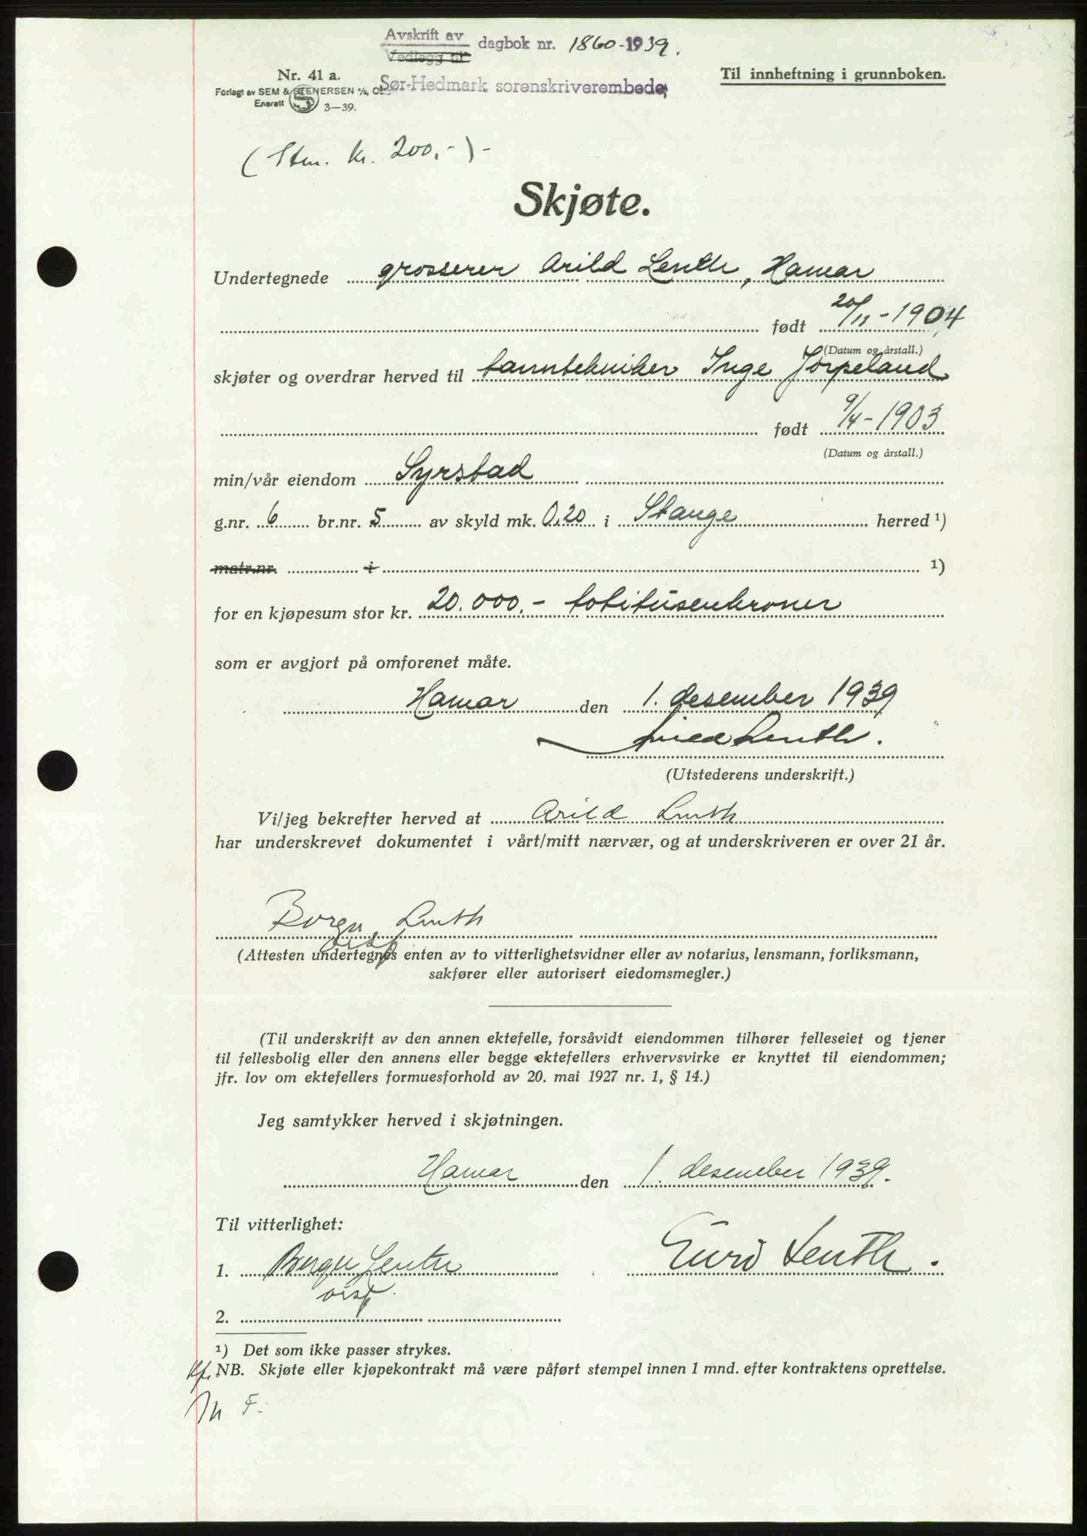 Avskrift av
Vedlegg til
dagbok nr. 1860-1939.
Nr. 41 a.
Til innheftning i grunnboken.
Forlagt av SEM & STENERSEN A/S, O
Sør-Hedmark sorenskriverembede,
Enerett 3—39.
(Stm. kr. 200,-)-
Skjøte.
Undertegnede grosserer Arild Lenth, Hamar
født 20/11-1904
(Datum og årstall.)
skjøter og overdrar herved til tanntekniker Inge Jørpeland
født 9/4-1903
(Datum og årstall.)
min/vår eiendom Syrstad
g.nr. 6 br.nr. 5 av skyld mk. 0,20 i Stange herred ¹)
matr.nr. i ¹)
for en kjøpesum stor kr. 20.000,- totitusenkroner
som er avgjort på omforenet måte.
Hamar den 1. desember 1939
Arild Lenth.
(Utstederens underskrift.)
Vi/jeg bekrefter herved at Arild Lenth
har underskrevet dokumentet i vårt/mitt nærvær, og at underskriveren er over 21 år.
Borger Lenth
disp
(Attesten undertegnes enten av to vitterlighetsvidner eller av notarius, lensmann, forliksmann,
sakfører eller autorisert eiedomsmegler.)
(Til underskrift av den annen ektefelle, forsåvidt eiendommen tilhører felleseiet og tjener
til fellesbolig eller den annens eller begge ektefellers erhvervsvirke er knyttet til eiendommen;
jfr. lov om ektefellers formuesforhold av 20. mai 1927 nr. 1, § 14.)
Jeg samtykker herved i skjøtningen.
Hamar den 1. desember 1939.
Til vitterlighet:
1. Borger Lenth
Lenth.
disp.
2.
¹) Det som ikke passer strykes.
NB. Skjøte eller kjøpekontrakt må være påført stempel innen 1 mnd. efter kontraktens oprettelse.